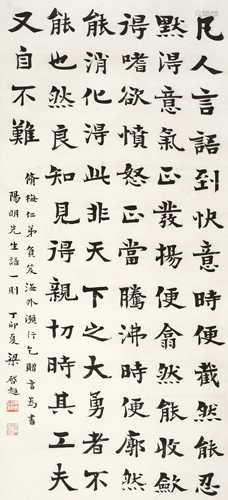 凡人言語到快意時便截然能忍
默得意氣正發揚便翕然能收斂
得嗜欲憤怒正當騰沸時便廓然
能消化得此非天下之大勇者不
能也然良知見得親切時其工夫
又自不難
脩梅仁弟負笈海外瀕行乞贈言為書
陽明先生語一則 丁卯夏 梁啟超